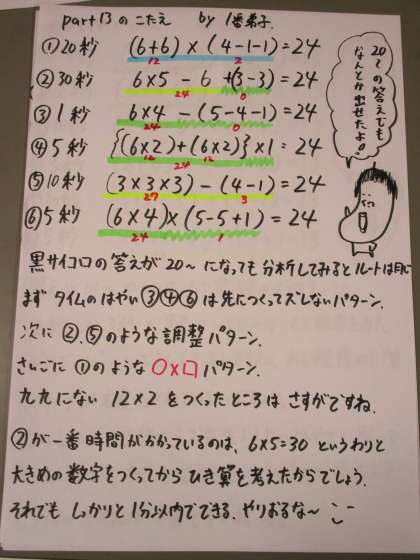 part 13 のこたえ by 1番弟子.
①20秒 (6+6)×(4-1-1)=24
12 2
②30秒 6×5-6+(3-3)=24
24 0
③1秒 6×4-(5-4-1)=24
24 0
④5秒 {(6×2)+(6×2)}×1=24
12 24 12
⑤10秒 (3×3×3)-(4-1)=24
27 3
⑥5秒 (6×4)×(5-5+1)=24
24 1
20〜の答えでも
なんとか出せたよ!
黒サイコロの答えが20〜になっても分析してみるとルートは同じ
まず タイムのはやい③④⑥は先につくってズレないパターン.
次に②.⑤のような調整パターン.
さいごに①のような○×□パターン.
九九にない12×2をつくったところはさすがですね.
②が一番時間がかかっているのは、6×5=30というわりと
大きめの数字をつくってからひき算を考えたからでしょう.
それでもしっかりと1分以内でできる.やりおるな〜